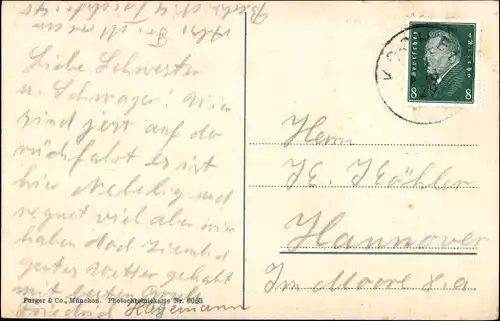 Liebe Schwester
u. Schwager! Wir
sind jezt auf da
rückfahrt es ist
hier Nebelig und
regnet viel aber wir
haben doch ziemlich
gutes Wetter gehabt
mit besten Gruß
Friedrich Hagemann
Purger & Co., München. Photochromiekarte Nr. 6003
Deutsches Reich
8 8
Herrn
K. Köhler
Hannover
Im Moore 8.a